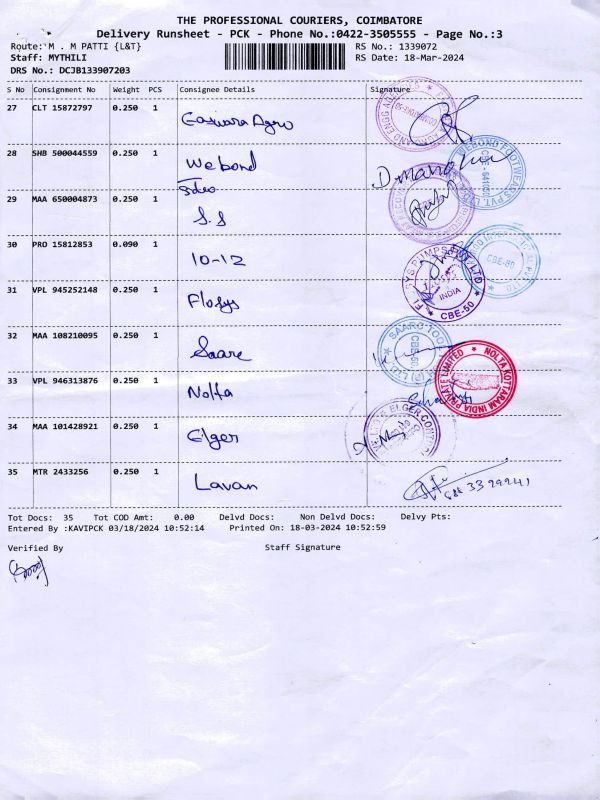 THE PROFESSIONAL COURIERS, COIMBATORE
Delivery Runsheet - PCK - Phone No.:0422-3505555 - Page No.:3
Route: M . M PATTI {L&T}
RS No.: 1339072
Staff: MYTHILI
RS Date: 18-Mar-2024
DRS No.: DCJB133907203
S No Consignment No Weight PCS Consignee Details Signature
27 CLT 15872797 0.250 1 Easwara Agro
28 SHB 500044559 0.250 1 Webond
29 MAA 650004873 0.250 1 S.S
30 PRO 15812853 0.090 1 10-12
31 VPL 945252148 0.250 1 Flosys
FLOSYS PUMPS PVT LTD
INDIA
CBE-50
32 MAA 108210095 0.250 1 Saarc
33 VPL 946313876 0.250 1 Nolta
NOLTA KOTTARAM INDIA PRIVATE LIMITED
34 MAA 101428921 0.250 1 Elger
35 MTR 2433256 0.250 1 Lavan
Tot Docs: 35 Tot COD Amt: 0.00 Delvd Docs: Non Delvd Docs: Delvy Pts:
Entered By :KAVIPCK 03/18/2024 10:52:14 Printed On: 18-03-2024 10:52:59
Verified By Staff Signature